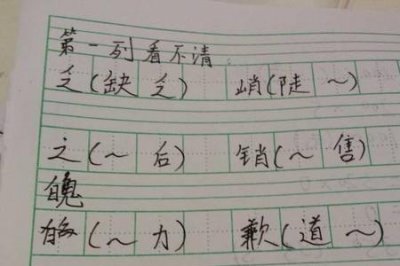 第一列看不清
乏(缺乏) 峭(陡~)
之(~后) 销(~售)
魄
魄(~力) 歉(道~)